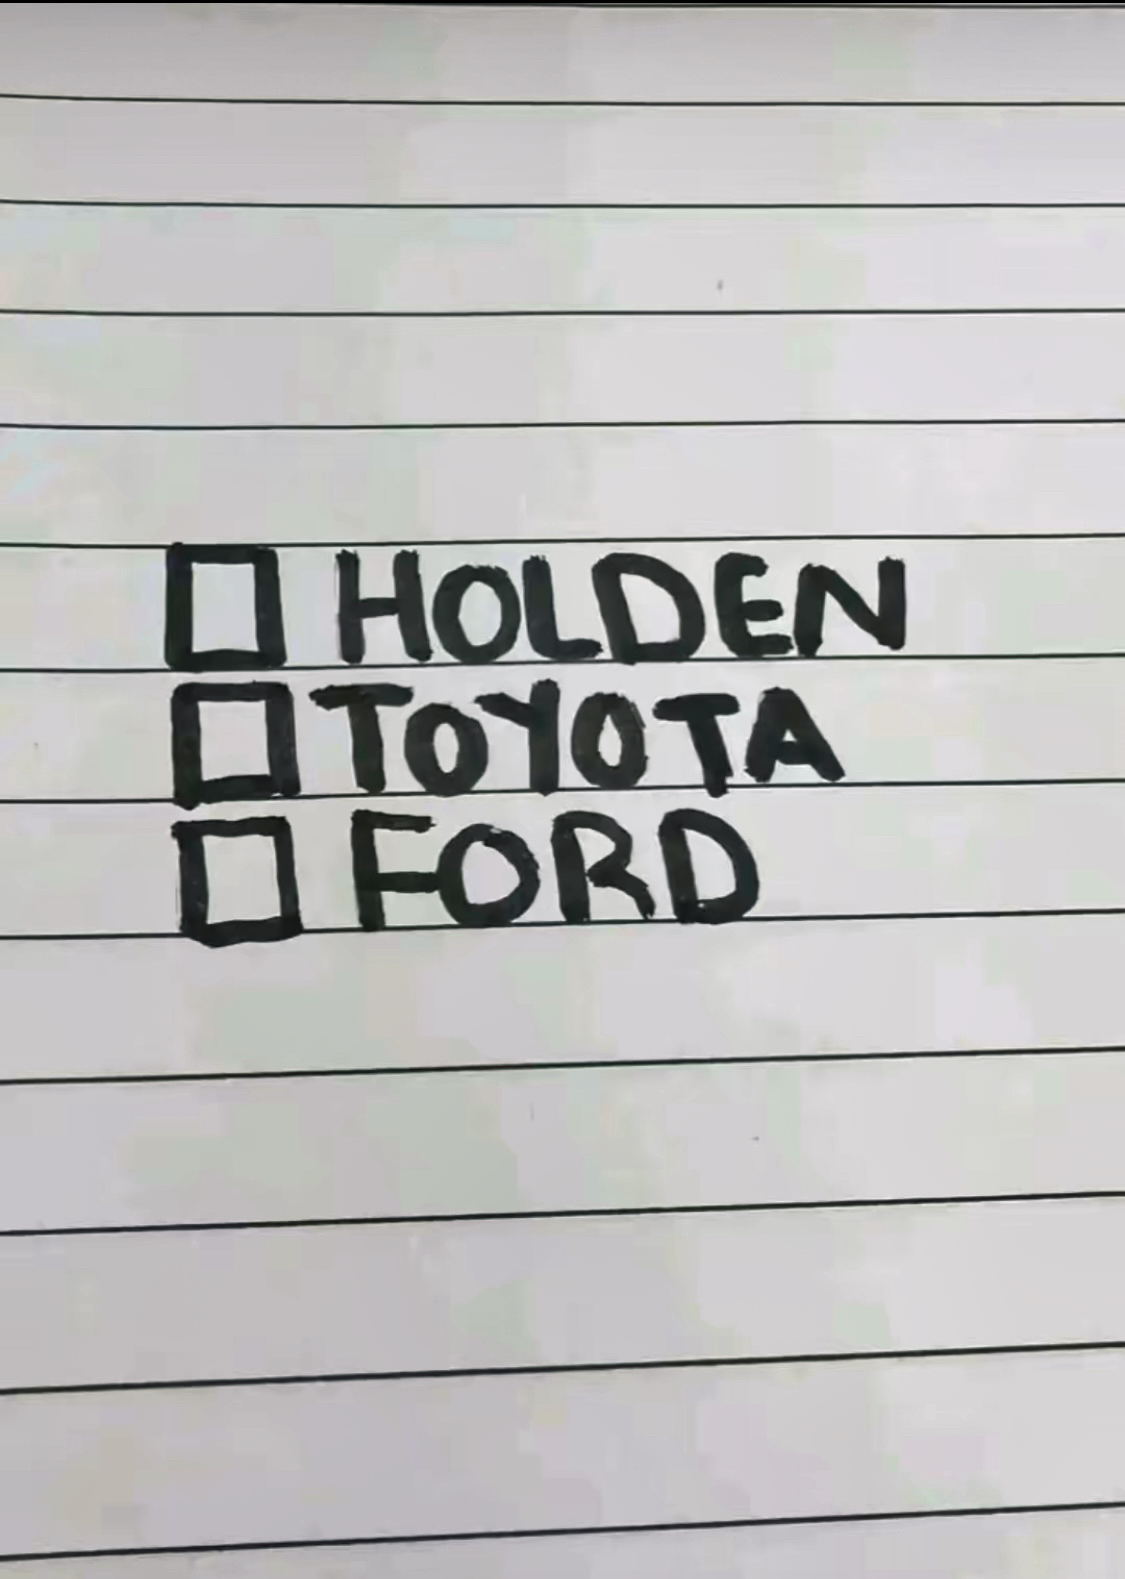 ☐ HOLDEN
☐ TOYOTA
☐ FORD